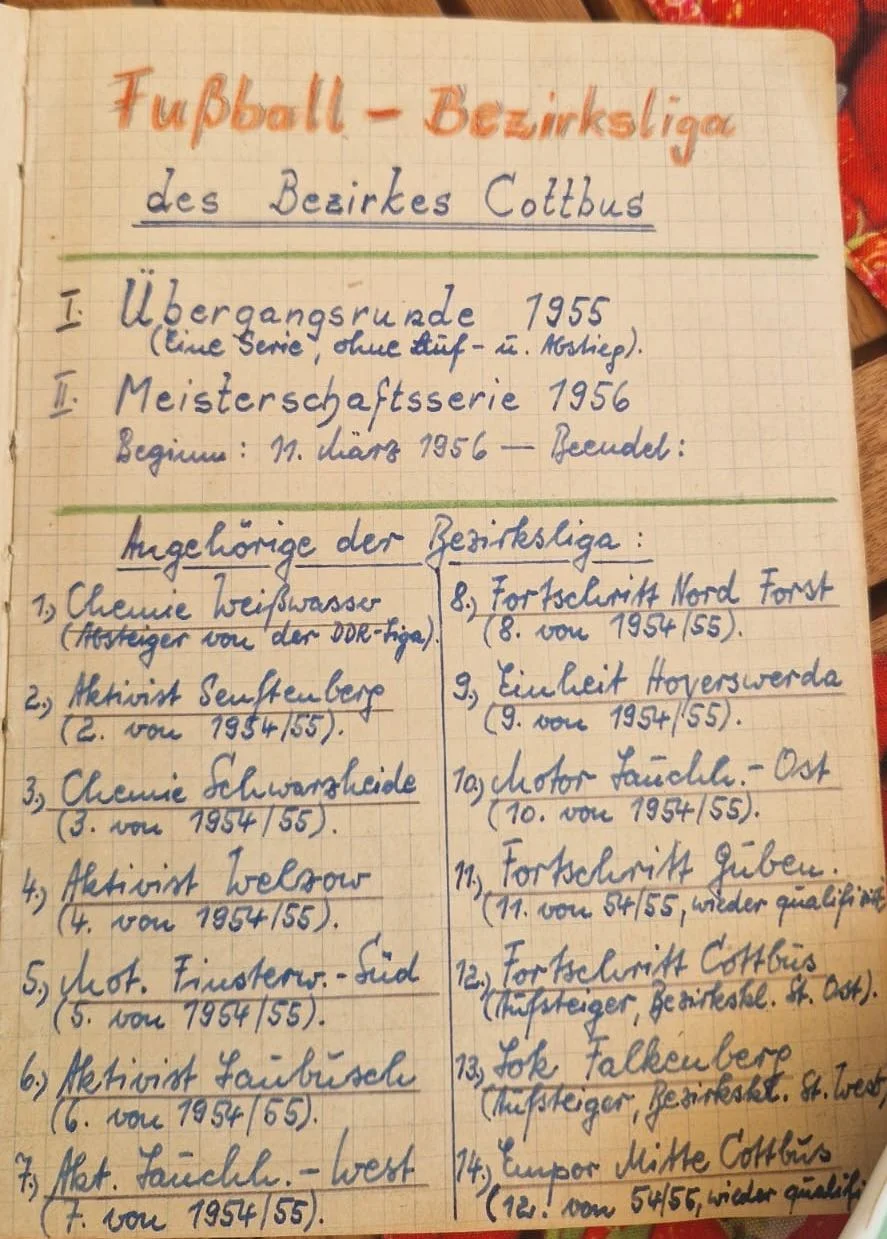 Fußball - Bezirksliga
des Bezirkes Cottbus
I. Übergangsrunde 1955
(Eine Serie, ohne Auf- u. Abstieg).
II. Meisterschaftsserie 1956
Beginn: 11. März 1956 — Beendet:
Angehörige der Bezirksliga:
1.) Chemie Weißwasser
(Absteiger von der DDR-Liga).
2.) Aktivist Senftenberg
(2. von 1954/55).
3.) Chemie Schwarzheide
(3. von 1954/55).
4.) Aktivist Welzow
(4. von 1954/55).
5.) Mot. Finsterw.-Süd
(5. von 1954/55).
6.) Aktivist Laubusch
(6. von 1954/55).
7.) Akt. Lauchh.-West
(7. von 1954/55).
8.) Fortschritt Nord Forst
(8. von 1954/55).
9.) Einheit Hoyerswerda
(9. von 1954/55).
10.) Motor Lauchh.-Ost
(10. von 1954/55).
11.) Fortschritt Guben.
(11. von 54/55, wieder qualifiziert
12.) Fortschritt Cottbus
(Aufsteiger, Bezirkskl. St. Ost).
13.) Lok Falkenberg
(Aufsteiger, Bezirkskl. St. West)
14.) Empor Mitte Cottbus
(12. von 54/55, wieder qualifi